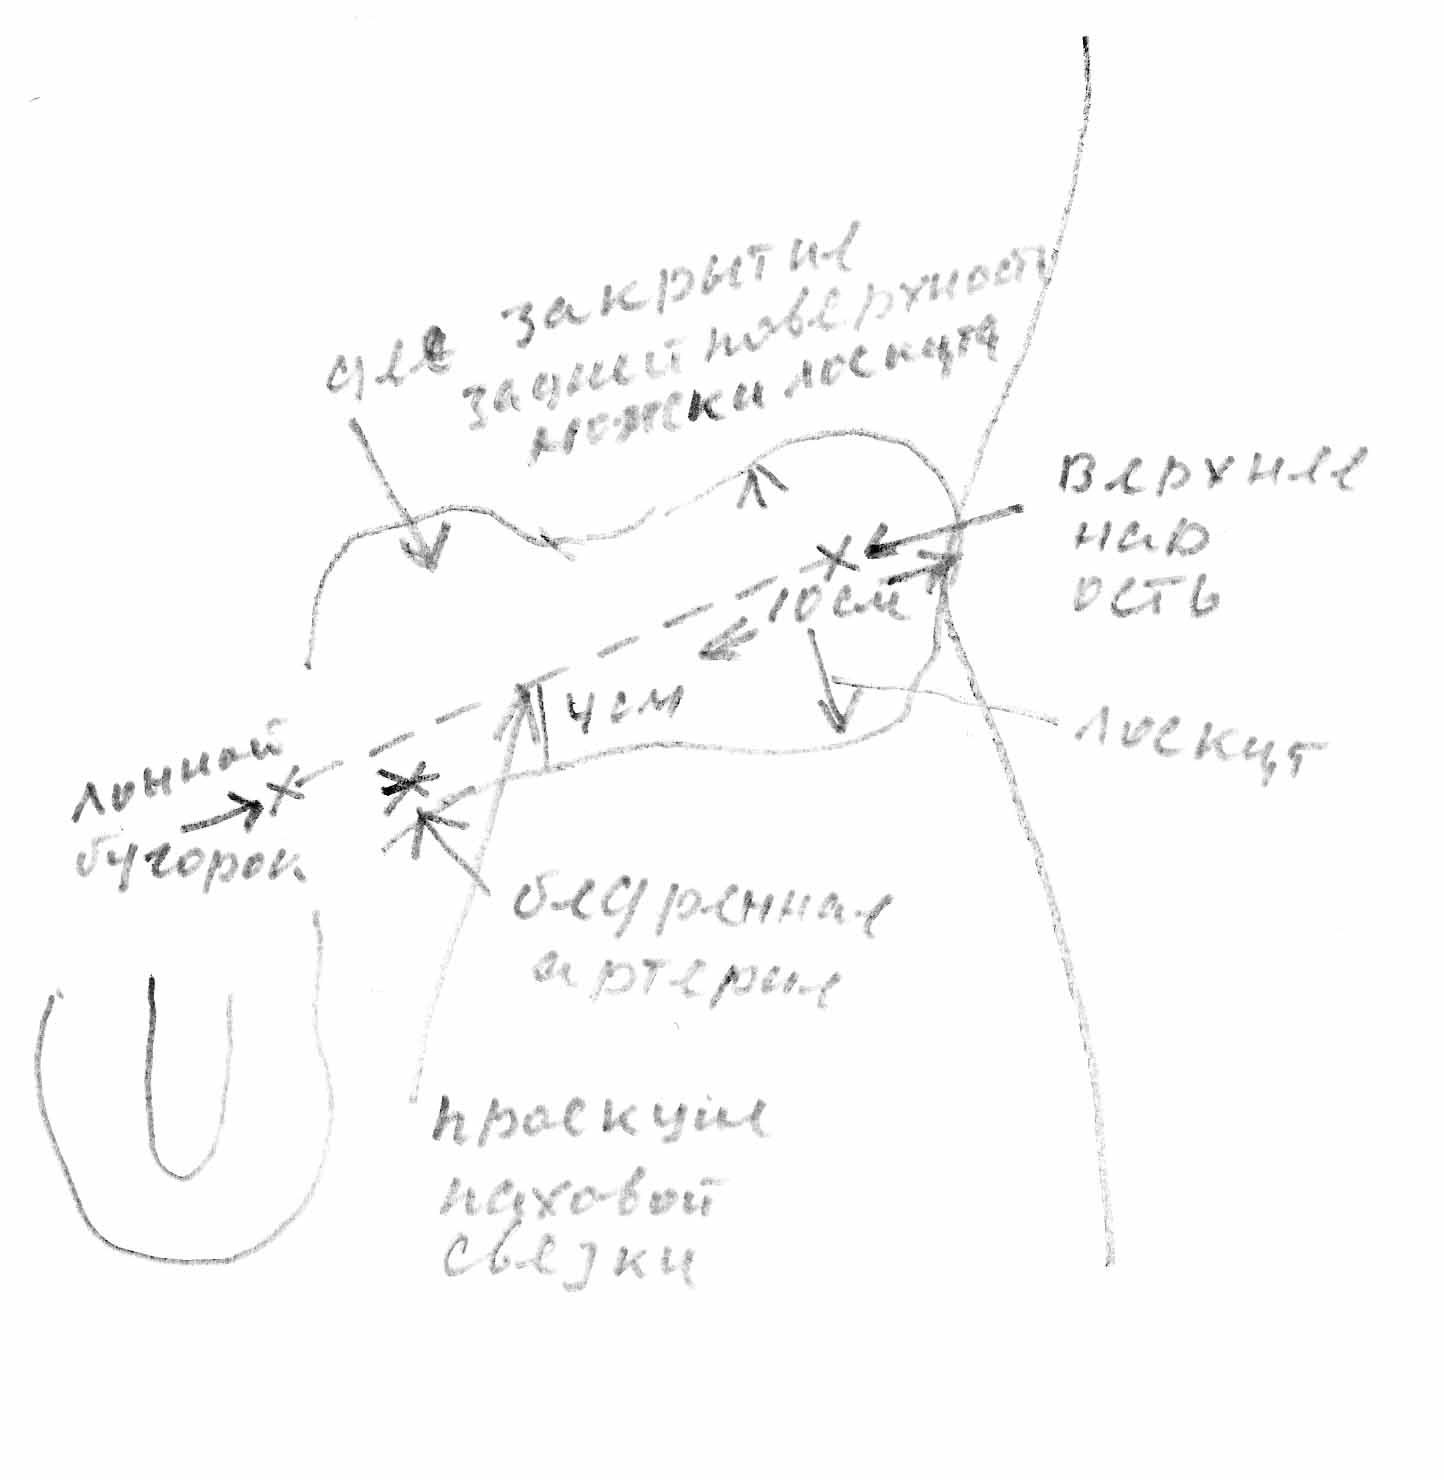 для закрытия
задней поверхности
ножки лоскута
верхняя
пав
ость
10 см
4 см
лоскут
лонной
бугорок
бедренная
артерия
проекция
паховой
связки